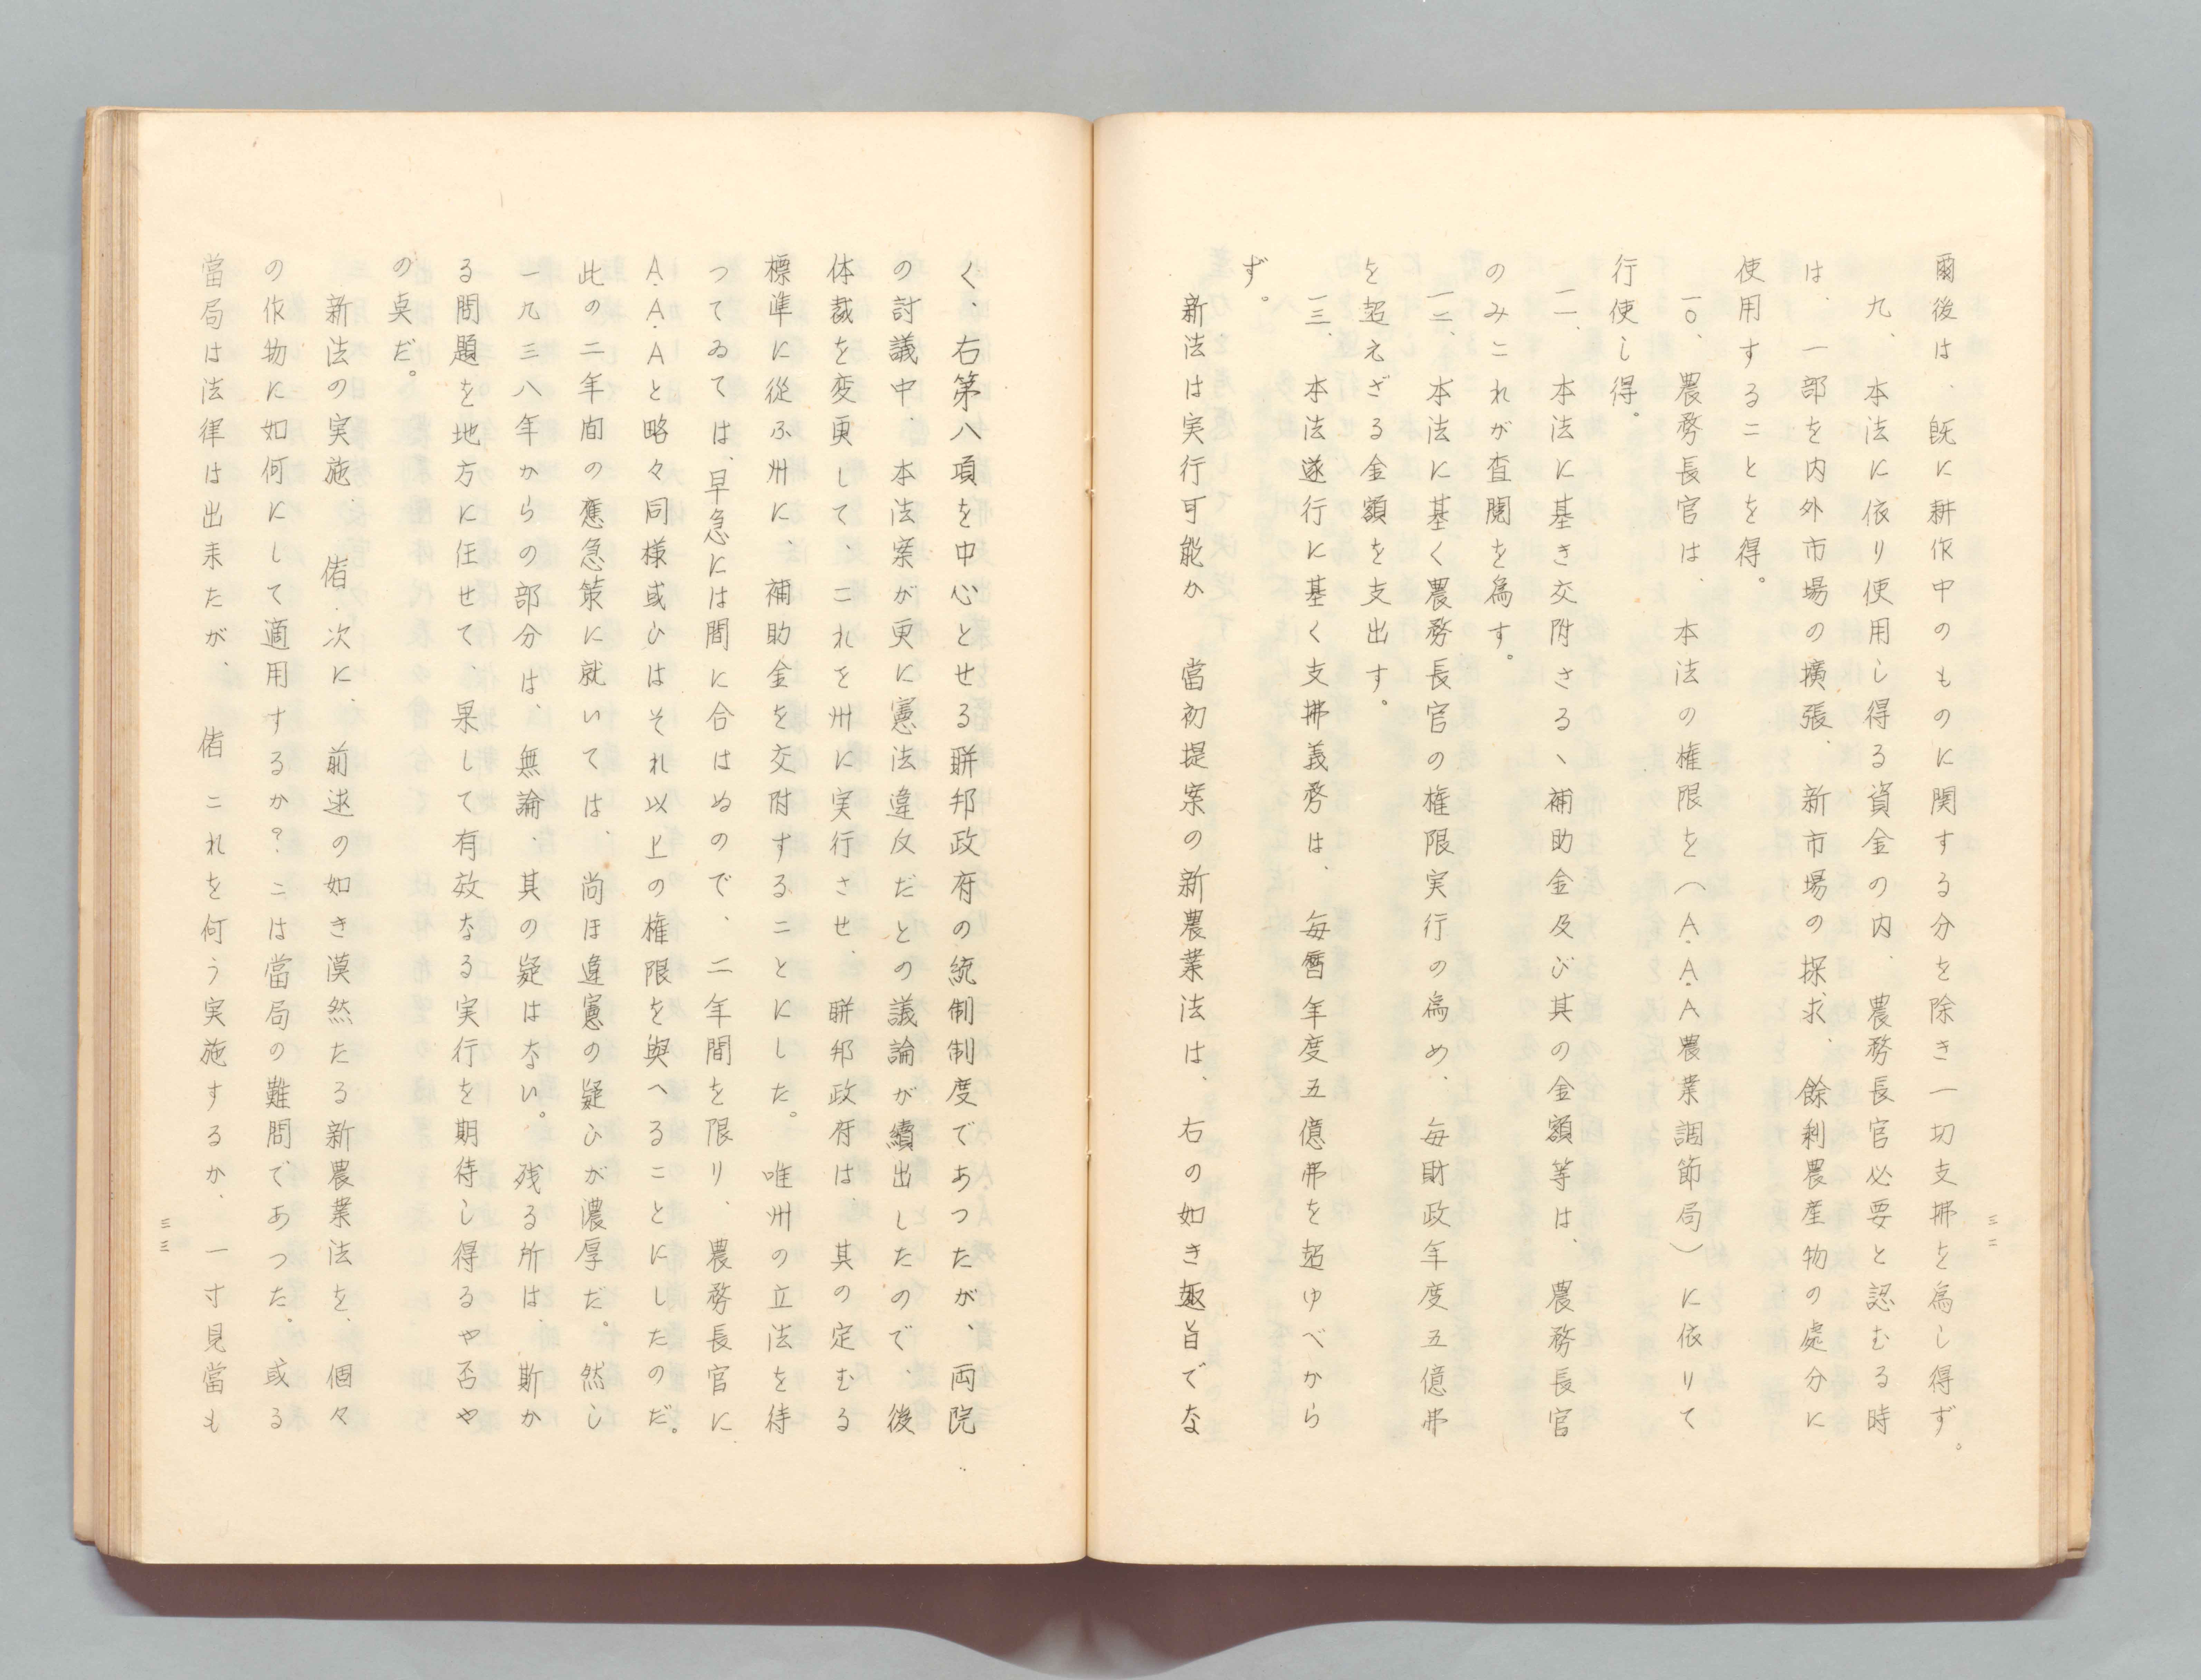 爾後は、既に耕作中のものに関する分を除き一切支拂を為し得ず。
九、本法に依り使用し得る資金の内、農務長官必要と認むる時
は、一部を内外市場の擴張、新市場の探求、餘剰農産物の處分に
使用することを得。
一〇、農務長官は、本法の権限を（A.A.A農業調節局）に依りて
行使し得。
一一、本法に基き交附さるヽ補助金及び其の金額等は、農務長官
のみこれが査閲を為す。
一二、本法に基く農務長官の権限実行の為め、毎財政年度五億弗
を超えざる金額を支出す。
一三、本法遂行に基く支拂義務は、毎暦年度五億弗を超ゆべから
ず。
新法は実行可能か　當初提案の新農業法は、右の如き趣旨でな
三二
く、右第八項を中心とせる聯邦政府の統制制度であつたが、両院
の討議中、本法案が更に憲法違反だとの議論が續出したので、後
体裁を変更して、これを州に実行させ、聯邦政府は、其の定むる
標準に從ふ州に、補助金を交附することにした。唯州の立法を待
つてゐては、早急には間に合はぬので、二年間を限り、農務長官に
A.A.Aと略々同様或ひはそれ以上の権限を與へることにしたのだ。
此の二年間の應急策に就いては、尚ほ違憲の疑ひが濃厚だ。然し
一九三八年からの部分は、無論、其の疑はない。残る所は、斯か
る問題を地方に任せて、果して有效なる実行を期待し得るや否や
の㸃だ。
新法の実施　偖、次に、前述の如き漠然たる新農業法を、個々
の作物に如何にして適用するか？こは當局の難問であつた。或る
當局は法律は出来たが、偖　これを何う実施するか、一寸見當も
三三